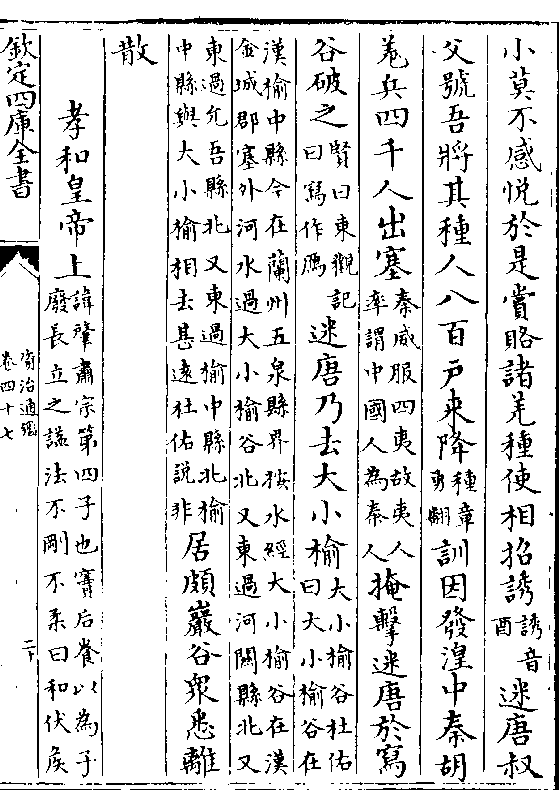 小莫不感悅於是賞賂諸羌種使相招誘誘音酉迷唐叔
父號吾將其種人八百戶来降種章勇翻訓因發湟中秦胡
羌兵四千人出塞秦威服四夷故夷人率謂中國人為秦人掩擊迷唐於寫
谷破之賢曰東觀記曰寫作鴈迷唐乃去大小榆大小榆谷杜佑曰大小榆谷在
漢榆中縣今在蘭州五泉縣界按水經大小榆谷在漢
金城郡塞外河水過大小榆谷北又東過河關縣北又
東過允吾縣北又東過榆中縣北榆
中縣與大小榆相去甚遠杜佑說非居頗巖谷衆悉離
散
孝和皇帝上諱肇肅宗第四子也竇后養以為子
廢長立之諡法不剛不柔曰和伏侯
欽定四庫全書
資治通鑑
卷四十七
二下